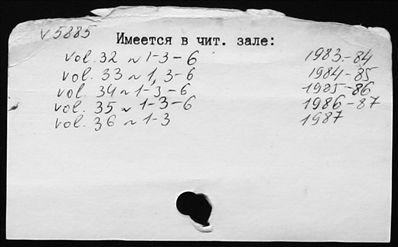 V5885
Имеется в чит. зале:
vol. 32 N 1-3-6 1983-84
vol. 33 N 1, 3-6 1984-85
vol. 34 N 1-3,-6 1985-86
vol. 35 N 1-3-6 1986-87
vol. 36 N 1-3 1987